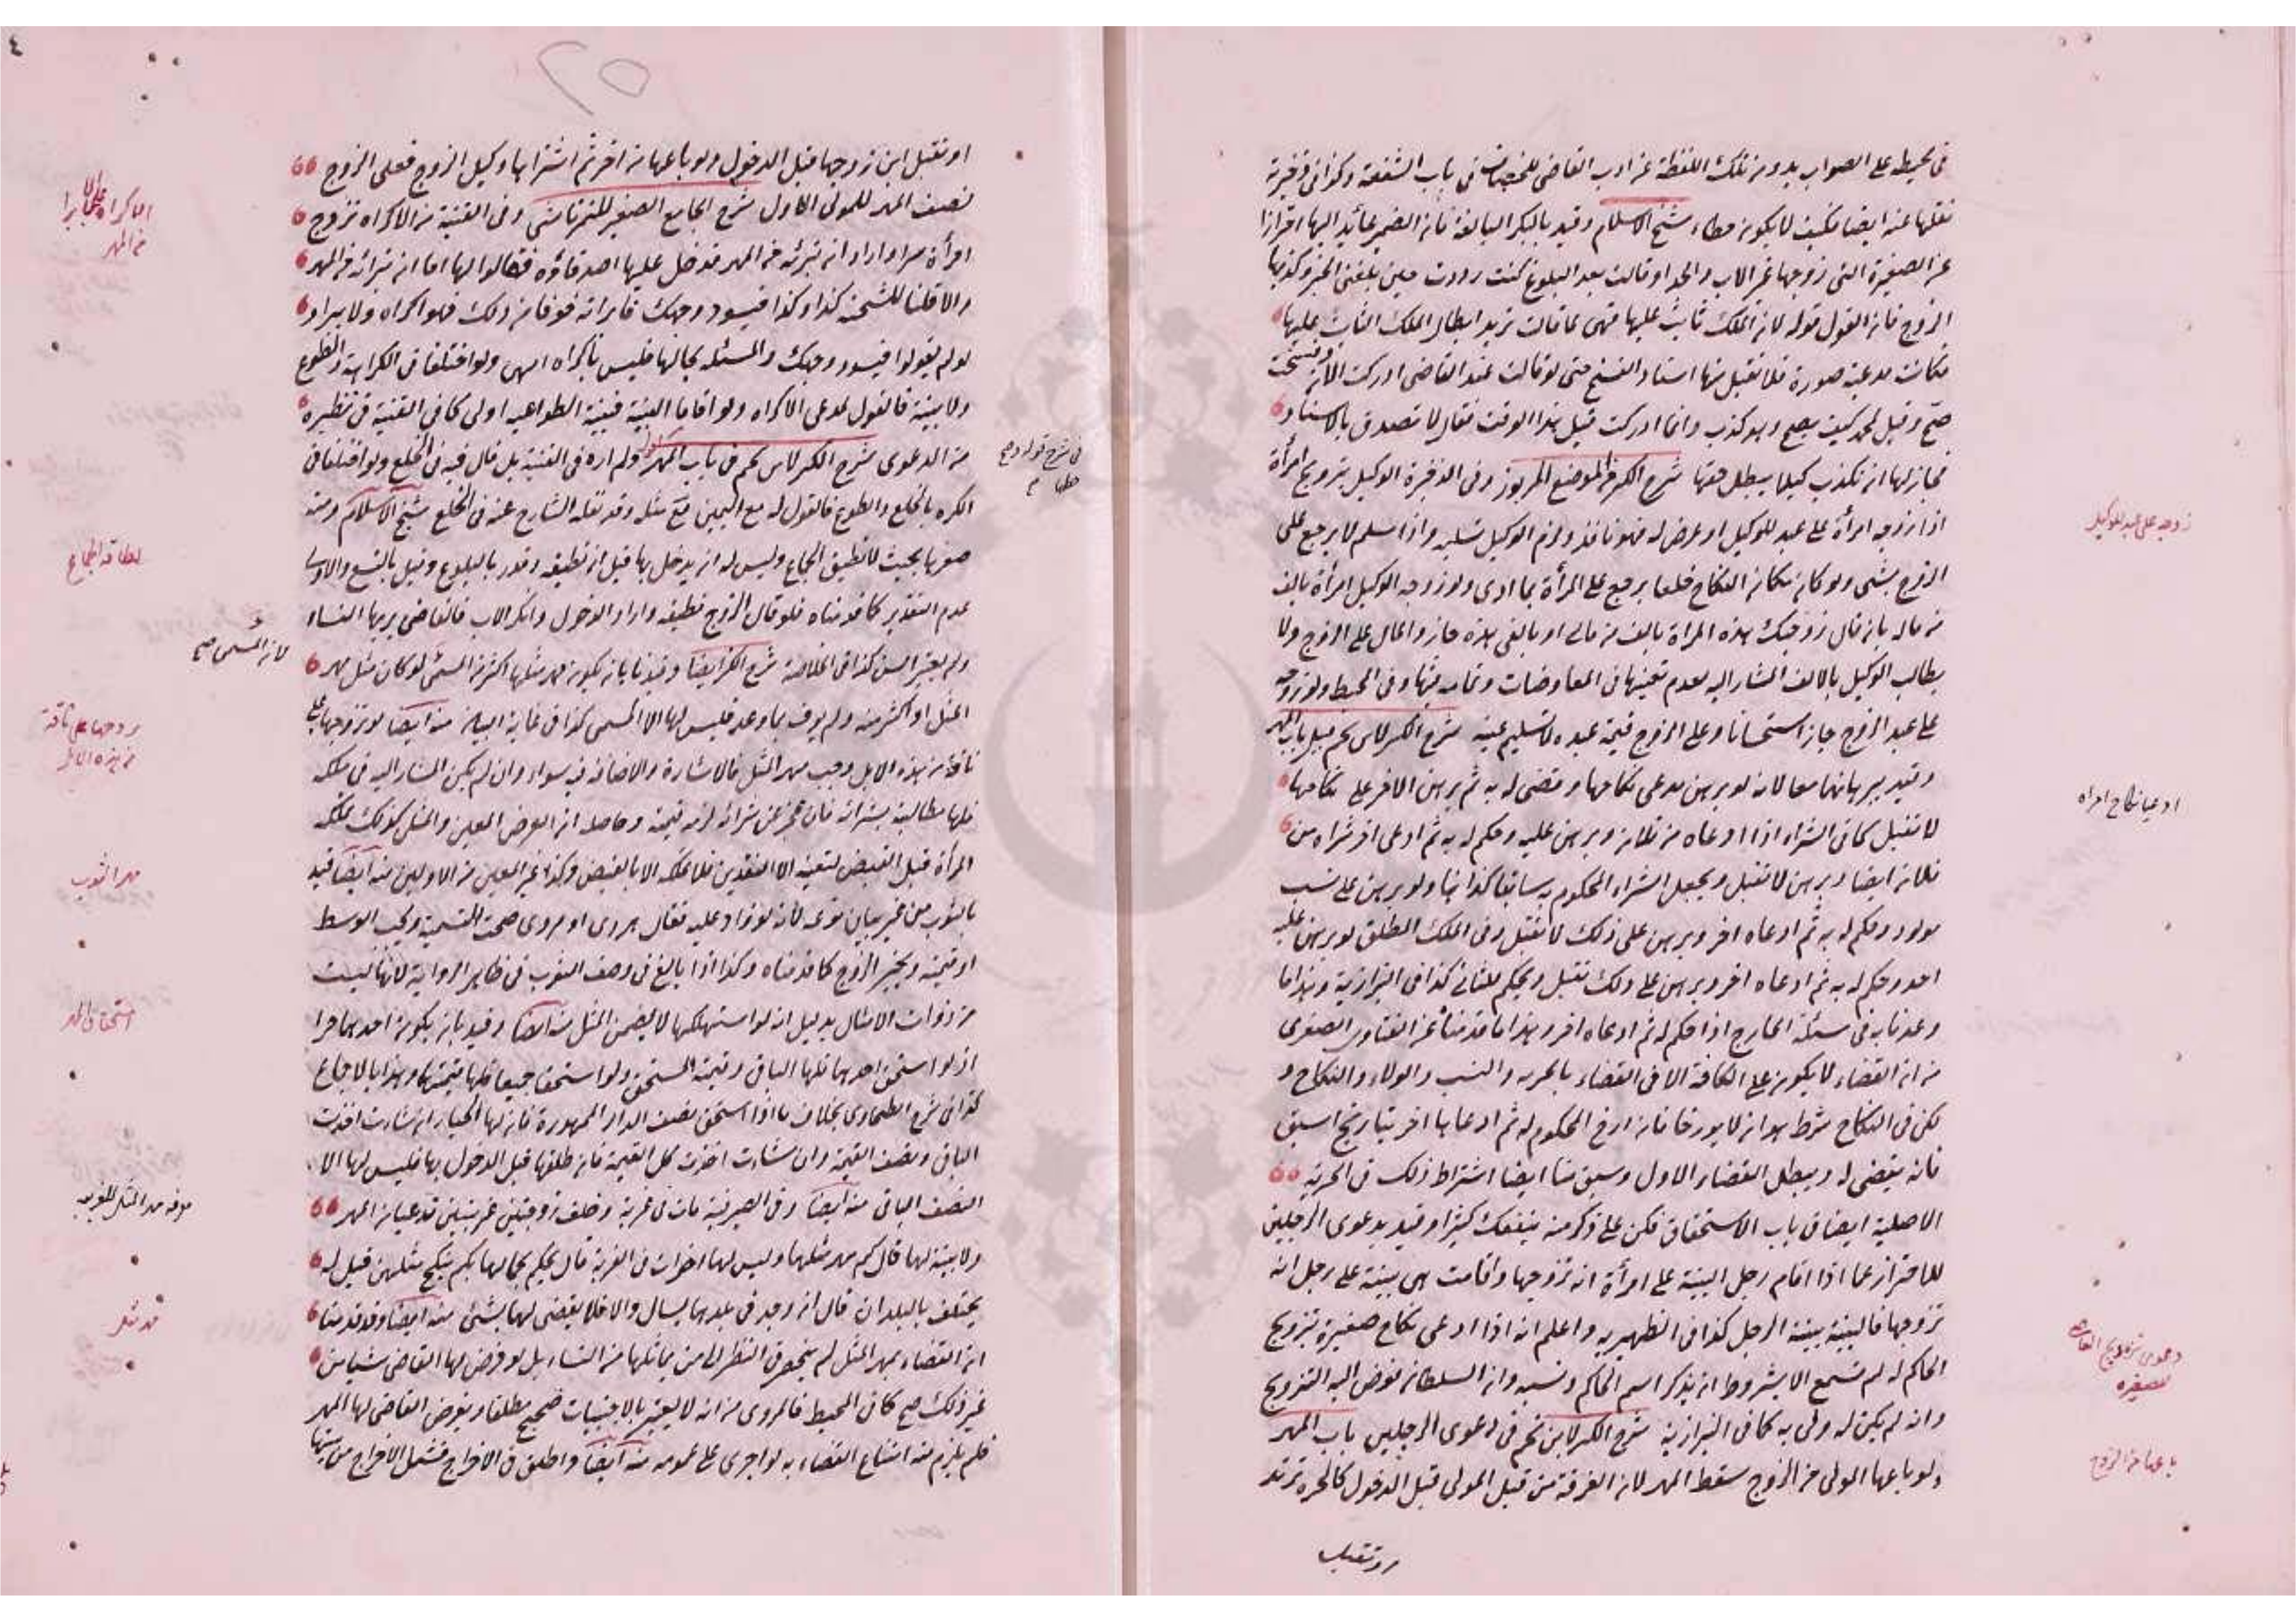 في محيطه على الصواب بدون تلك اللفظة عن ادب القاضي للخصاف في باب الشفعة وكذا في ذخيرته
نقلها عنه ايضا فكيف لا يكون خطاء شيخ الاسلام وقيد بالبكر البالغة فان الضمير عائد اليها احترازا
عن الصغيرة التي زوجها غير الاب والجد او قالت بعد البلوغ كنت رددت حين بلغني الخبر وكذبها
الزوج فان القول قوله لان الملك ثابت عليها فهي بما قالت تريد ابطال الملك الثابت عليها
فكانت مدعية صورة فلا تقبل منها اسناد الفسخ حتى لو قالت عند القاضي ادركت الان وفسخت
صح وقيل لمحمد كيف يصح وهو كذب وانما ادركت قبل هذا الوقت فقال لا تصدق بالاسناد
فجاز لها ان تكذب كيلا يبطل حقها شرح الكنز في الموضع المزبور وفي الذخيرة الوكيل بتزويج امرأة
اذا زوجه امرأة على عبد للوكيل او عرض له فهو نافذ ولزم الوكيل تسليمه واذا سلم لا يرجع على
الزوج بشئ ولو كان مكان النكاح خلعا يرجع على المرأة بما ادى ولو زوجه الوكيل امرأة بالف
من ماله بان قال زوجتك هذه المراة بالف من مالي او بالفي هذه جاز والمال على الزوج ولا
يطالب الوكيل بالالف المشار اليه لعدم تعينها في المعاوضات وتمامه فيها وفي المحيط ولو زوجه
على عبد الزوج جاز استحسانا وعلى الزوج قيمة عبده لا تسليم عينه شرح الكنز لابن نجيم قبيل باب المهر
وقيد ببرهانهما معا لانه لو برهن مدعي نكاحها وقضي له به ثم برهن الاخر على نكاحها
لا تقبل كما في الشراء اذا ادعاه من فلان وبرهن عليه وحكم له به ثم ادعى اخر شراءه من
فلان ايضا وبرهن لا تقبل ويجعل الشراء المحكوم به سابقا كذا هنا ولو برهن على نسب
مولود وحكم له به ثم ادعاه اخر وبرهن على ذلك لا تقبل وفي الملك المطلق لو برهن عليه
احد وحكم له به ثم ادعاه اخر وبرهن على ذلك تقبل ويحكم للثاني كذا في البزازية وهذا ما
وعدناه في مسئلة الخارج اذا حكم له ثم ادعاه اخر وهذا ما قدمناه عن الفتاوى الصغرى
من ان القضاء لا يكون على الكافة الا في القضاء بالحرية والنسب والولاء والنكاح و
لكن في النكاح شرط هو ان لا يورخا فان ارخ المحكوم له ثم ادعاها اخر بتاريخ اسبق
فانه يقضى له ويبطل القضاء الاول وسبق منا ايضا اشتراط ذلك في الحرية
الاصلية ايضا في باب الاستحقاق فكن على ذكر منه ينفعك كثيرا وقيد بدعوى الرجلين
للاحتراز عما اذا اقام رجل البينة على امرأة انه تزوجها واقامت هي بينة على رجل انه
تزوجها فالبينة بينة الرجل كذا في الظهيرية واعلم انه اذا ادعى نكاح صغيرة بتزويج
الحاكم له لم تسمع الا بشروط ان يذكر اسم الحاكم ونسبه وان السلطان فوض اليه التزويج
وانه لم يكن له ولي به كما في البزازية شرح الكنز لابن نجيم في دعوى الرجلين باب المهر
ولو باعها المولى من الزوج سقط المهر لان الفرقة من قبل المولى قبل الدخول كالحرة ترتد
زوجه على عبد للوكيل
ادعيا نكاح امراه
دعوى تزويج القاضي
للصغيره
باعها من الزوج
او تقبل ابن زوجها قبل الدخول ولو باعها من اخر ثم اشتراها وكيل الزوج فعلى الزوج
نصف المهر للمولى الاول شرح الجامع الصغير للتمرتاشي وفي القنية من الاكراه تزوج
امرأة سرا واراد ان تبرئه من المهر فدخل عليها اصدقاؤه فقالوا لها اما ان تبرائه من المهر
والا قلنا للشحنة كذا وكذا فيسود وجهك فابراته خوفا من ذلك فهو اكراه ولا يبراو
لو لم يقولوا فيسود وجهك والمسئلة بحالها فليس باكراه انتهى ولو اختلفا في الكراهية والطوع
ولا بينة فالقول لمدعي الاكراه ولو اقاما البينة فبينة الطواعيه اولى كما في القنية في نظيره
من الدعوى شرح الكنز لابن نجيم في باب المهر ولم اره في القنية بل قال فيه في الخلع ولو اختلفا في
الكره بالخلع والطوع فالقول له مع اليمين قع مثله وقد نقله الشارح عنه في الخلع شيخ الاسلام ومنه
صغرها بحيث لا تطيق الجماع وليس له ان يدخل بها قبل ان تطيقه وقدر بالبلوغ وقيل بالتسع والاولى
عدم التقدير كما قدمناه فلو قال الزوج تطيقه واراد الدخول وانكر الاب فالقاضي يريها النساء
ولم يعتبر السن كذا في الخلاصة شرح الكنز ايضا وقيدنا بان يكون مهر مثلها اكثر من المسمى لو كان مثل مهر
المثل او اكثر منه ولم يوف بما وعد فليس لها الا المسمى كذا في غاية البيان منه ايضا لو تزوجها على
ناقة من هذه الابل وجب مهر المثل فالاشارة والاضافة فيه سواء وان لم يكن المشار اليه في ملكه
فلها مطالبته بشرائه فان عجز عن شرائه لزمه قيمته وحاصله ان العوض المعين والمثلي كذلك تملكه
المرأة قبل القبض لتعينه الا النقدين فلا تملكه الا بالقبض وكذا غير المعين من الاولين منه ايضا قيد
بالثوب من غير بيان نوعه لانه لو زاد عليه فقال هروي او مروي صحت التسمية ويجب الوسط
او قيمته ويخير الزوج كما قدمناه وكذا اذا بالغ في وصف الثوب في ظاهر الرواية لانها ليست
من ذوات الامثال بدليل انه لو استهلكها لا يضمن المثل منه ايضا وقيد بان يكون احدهما حرا
اذ لو استحق احدهما فلها الباقي وقيمة المستحق ولو استحقا جميعا فلها قيمتهما وهذا بالاجماع
كذا في شرح الطحاوي بخلاف ما اذا استحق نصف الدار الممهورة فان لها الخيار ان شاءت اخذت
الباقي ونصف القيمة وان شاءت اخذت كل القيمة فان طلقها قبل الدخول بها فليس لها الا
النصف الباقي منه ايضا وفي الصيرفية مات في غربة وخلف زوجتين غريبتين تدعيان المهر
ولا بينة لهما قال كم مهر مثلهما وليس لها اخوات في الغربة قال يحكم بحالهما بكم ينكح مثلهن قيل له
يختلف بالبلدان قال ان وجد في بلدهما يسال والا فلا يقضى لهما بشئ منه ايضا وقد قدمنا
ان القضاء بمهر المثل لم ينحصر في النظر الى من يماثلها من النساء بل لو فرض لها القاضي شيئا من
غير ذلك صح كما في المحيط فالمروي من انه لا يعتبر بالاجنبيات صحيح مطلقا ويفرض القاضي لها المهر
فلم يلزم منه امتناع القضاء به لو اجري على عمومه منه ايضا واطلق في الاخراج فشمل الاخراج من بيتها
الاكراه على الابرا
من المهر
اطاقه الجماع
لانه المسمى صح
زوجها على ناقة
من هذه الابل
مهر الثوب
استحقاق المهر
معرفه مهر المثل للغريبه